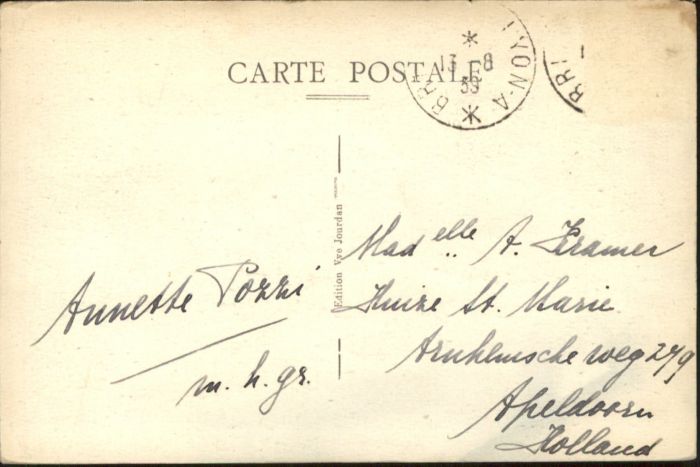 CARTE POSTALE
13 -8
39
Edition Vve Jourdan
Annette Pozzi
m. h. gr.
Mad elle A. Kramer
Huize St. Marie
Arnhemsche weg 249
Apeldoorn
Holland